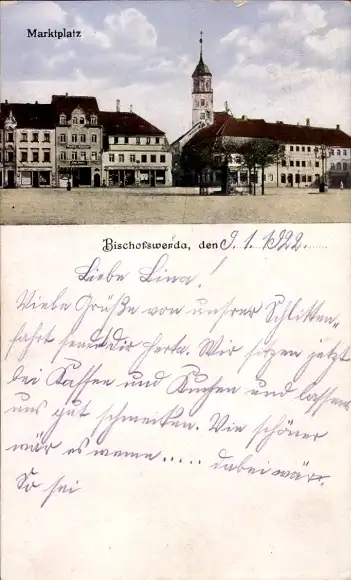 Marktplatz
Bischofswerda, den 9.1.1922.
Liebe Lina!
Viele Grüße von unsrer Schlitten-
fahrt sendet dir Herta. Wir sitzen jetzt
bei Kaffee und Kuchen und lassens
uns gut schmecken. Wie schöner
wär es wenn ..... dabei wär.
So sei